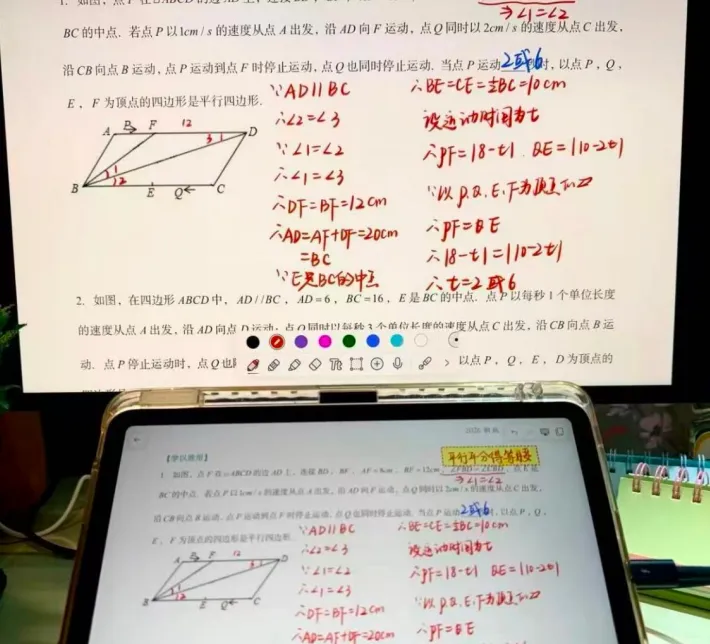 ⇒∠1=∠2
BC 的中点. 若点 P 以 1cm / s 的速度从点 A 出发, 沿 AD 向 F 运动, 点 Q 同时以 2cm / s 的速度从点 C 出发,
沿 CB 向点 B 运动, 点 P 运动到点 F 时停止运动, 点 Q 也同时停止运动. 当点 P 运动 2或6 时, 以点 P , Q ,
E , F 为顶点的四边形是平行四边形.
∵AD∥BC
∴∠2=∠3
∵∠1=∠2
∴∠1=∠3
∴DF=BF=12cm
∴AD=AF+DF=20cm
=BC
∵E是BC的中点
∴BE=CE=½BC=10cm
设运动时间为t
∴PF=|8-t| QE=|10-2t|
∵以P.Q.E.F为顶点的▱
∴PF=QE
∴|8-t|=|10-2t|
∴t=2或6
A P F 12 D
3 1
1
2
B E Q C
2. 如图, 在四边形 ABCD 中, AD//BC , AD=6 , BC=16 , E 是 BC 的中点. 点 P 以每秒 1 个单位长度
的速度从点 A 出发, 沿 AD 向点 D 运动, 点 Q 同时以每秒 3 个单位长度的速度从点 C 出发, 沿 CB 向点 B 运
动. 点 P 停止运动时, 点 Q 也 以点 P , Q , E , D 为顶点的
【学以致用】
平行平分得等腰
1. 如图, 点 F 在▱ABCD 的边 AD 上, 连接 BD , BF , AF=8cm , BF=12cm , ∠FBD=∠CBD, 点 E 是
⇒∠1=∠2
BC 的中点. 若点 P 以 1cm / s 的速度从点 A 出发, 沿 AD 向 F 运动, 点 Q 同时以 2cm / s 的速度从点 C 出发,
沿 CB 向点 B 运动, 点 P 运动到点 F 时停止运动, 点 Q 也同时停止运动. 当点 P 运动 2或6 时, 以点 P , Q ,
E , F 为顶点的四边形是平行四边形.
∵AD∥BC
∴∠2=∠3
∵∠1=∠2
∴∠1=∠3
∴DF=BF=12cm
∴AD=AF+DF=20cm
∴BE=CE=½BC=10cm
设运动时间为t
∴PF=|8-t| QE=|10-2t|
∵以P.Q.E.F为顶点的▱
∴PF=QE
A P F 12 D
3 1
1
2
B E Q C